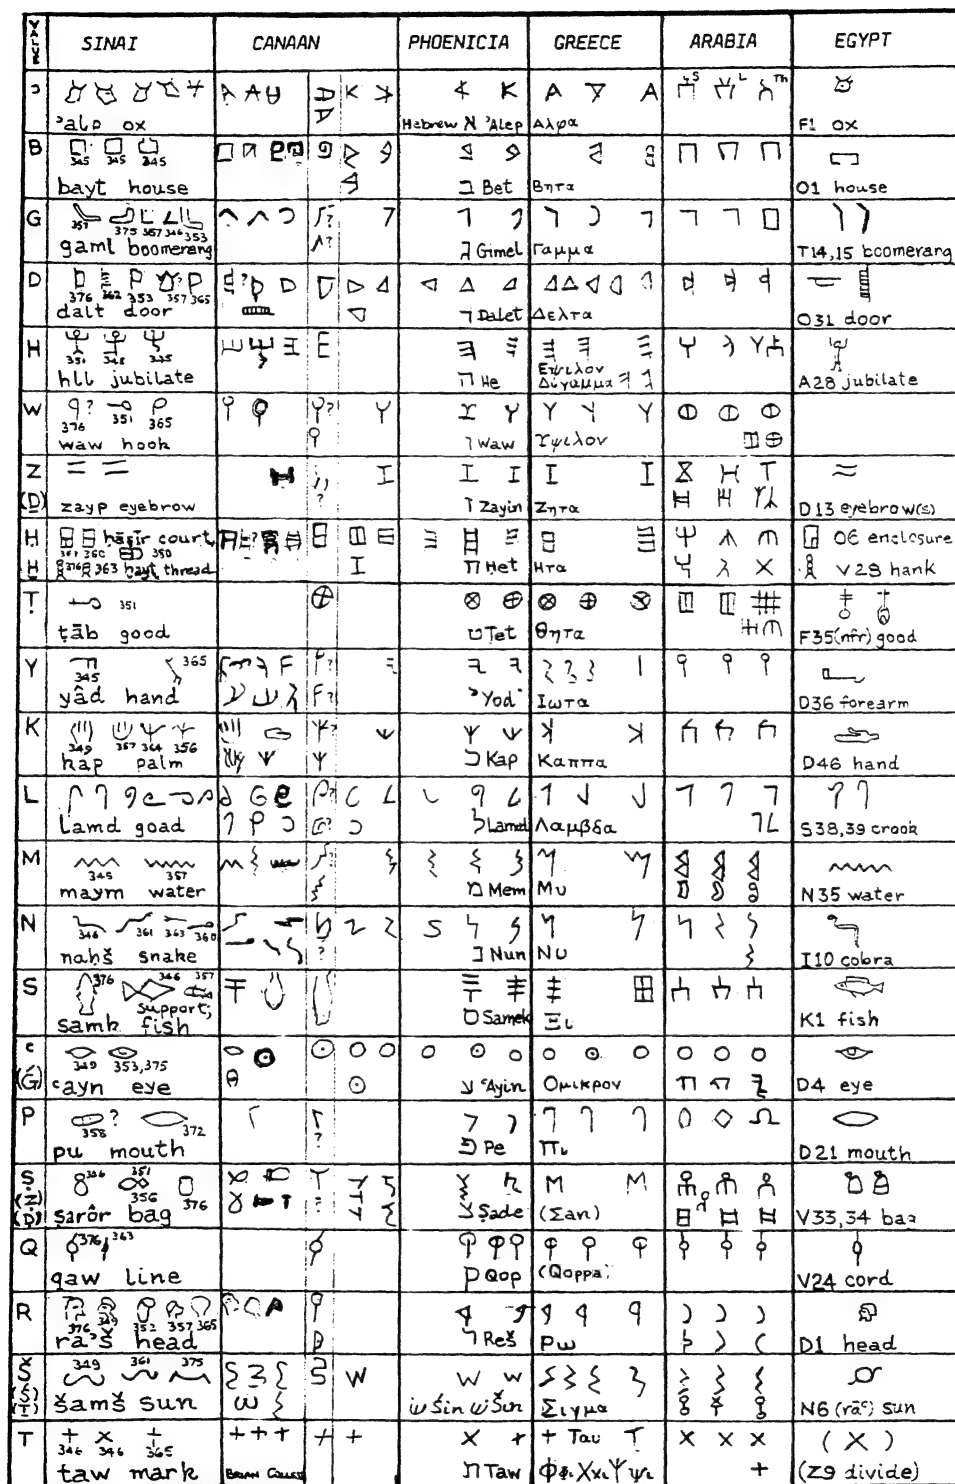 VALUE SINAI CANAAN PHOENICIA GREECE ARABIA EGYPT
ʾ
S L Th
ʾalp ox Hebrew א ʾAlep Αλφα F1 ox
B
345 345 345
bayt house ב Bet Βητα O1 house
G
357 375 357 346 353
gaml boomerang ג Gimel Γαμμα T14,15 boomerang
D
376 362 353 357 365
dalt door ד Dalet Δελτα O31 door
H
351 345
Εψιλον
hll jubilate ה He Διγαμμα A28 jubilate
W
376 351 365
waw hook ו Waw Υψιλον
Z
(Ḏ) zayp eyebrow ז Zayin Ζητα D13 eyebrow(s)
Ḥ ḥaṣir court, O6 enclosure
360 350
Ḫ 376 363 ḫayt thread ח Ḥet Ητα V28 hank
Ṭ
351
ṭāb good ט Ṭet Θητα F35 (nfr) good
Y
345 365
yâd hand י Yod Ιωτα D36 forearm
K
349 357 364 356
kap palm כ Kap Καππα D46 hand
L
lamd goad ל Lamed Λαμβδα S38,39 crook
M
345 357
maym water מ Mem Μυ N35 water
N
346 361 363 360
naḥš snake נ Nun Νυ I10 cobra
S
376 346 357
support,
samk fish ס Samek Ξι K1 fish
ʿ
349 353,375
(Ǵ) ʿayn eye ע ʿAyin Ομικρον D4 eye
P
358 ? 372
pu mouth פ Pe Πι D21 mouth
Ṣ
356 351 356 376
(Ẓ) (Ḍ) ṣarôr bag צ Ṣade (Σαν) V33,34 bag
Q
376 363
qaw line ק Qop (Qoppa) V24 cord
R
376 349 352 357 365
raʾš head ר Reš Ρω D1 head
Š
349 361 375
(Ś) (Ṯ) šamš sun שׂ Śin שׁ Šin Σιγμα N6 (rāʿ) sun
T
346 346 365
+ Ταυ Τ (X)
taw mark BRIAN COLLESS ת Taw Φφι Χχι Ψψι (Z9 divide)